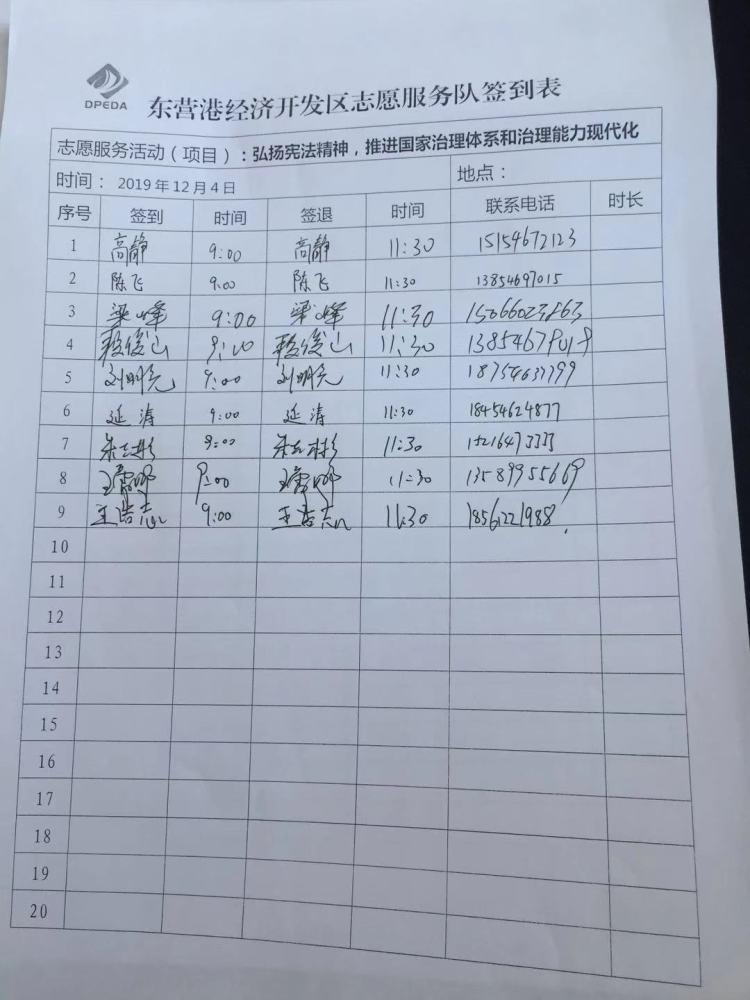 DPEDA
东营港经济开发区志愿服务队签到表
志愿服务活动（项目）：弘扬宪法精神，推进国家治理体系和治理能力现代化
时间： 2019年12月4日 地点：
序号 签到 时间 签退 时间 联系电话 时长
1 高静 9:00 高静 11:30 15154672123
2 陈飞 9:00 陈飞 11:30 13854697015
3 梁峰 9:00 梁峰 11:30
4 9:00 11:30
5 刘明亮 9:00 刘明亮 11:30
6 延涛 9:00 延涛 11:30 18454624877
7 9:00 11:30
8 9:00 11:30 13589955669
9 王浩志 9:00 王浩志 11:30 18561221988
10
11
12
13
14
15
16
17
18
19
20